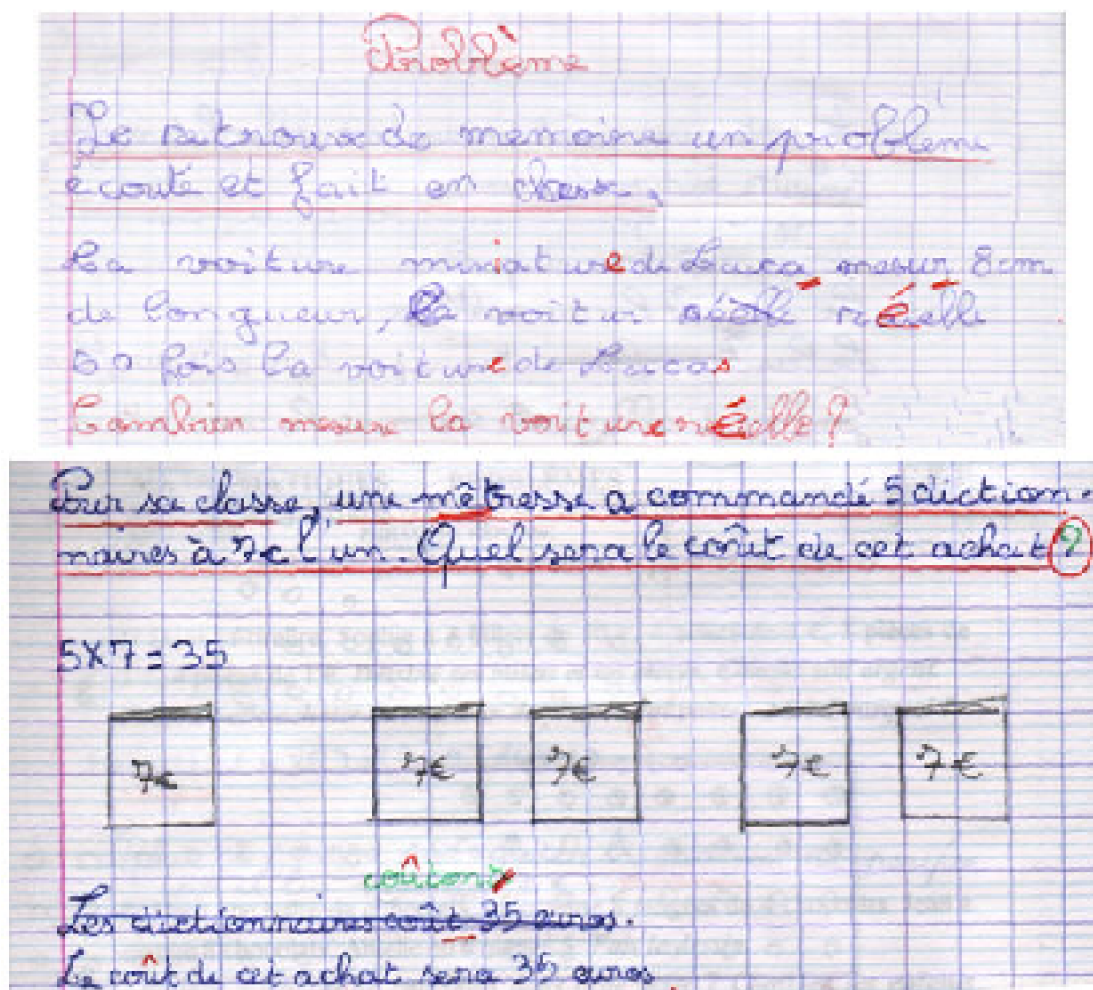 Problème
Je retrouve de mémoire un problème
écouté et fait en classe.
La voiture miniature de Luca mesur 8cm
de longueur, la voitur réelle
50 fois la voiture de Lucas
Combien mesure la voiture réelle ?
Pour sa classe, une mêtresse a commandé 5 diction-
naires à 7€ l'un. Quel sera le coût de cet achat ?
5x7=35
7€ 7€ 7€ 7€ 7€
coûtons
Les dictionnaires coût 35 euros.
Le coût de cet achat sera 35 euros